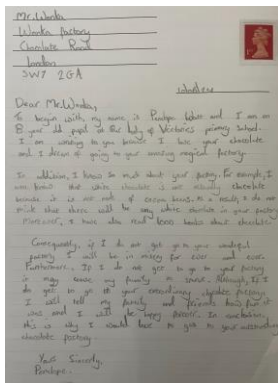 Mr. Wonka
Wonka factory
Chocolate Road
London
SW7 2GA
Dear Mr. Wonka,
To begin with, my name is Penelope and I am an
8 year old pupil at Our lady of Victories primary school.
I am writing to you because I love your chocolate
and I dream of going to your amazing magical factory.
In addition, I know so much about your factory. For example, I
know that white chocolate is not actually chocolate
because it is not made of cocoa beans. As a result, I do not
think that there will be any white chocolate in your factory.
Moreover, I have also read 1000 books about chocolate.
Consequently, if I do not get go to your wonderful
factory I will be in misery for ever and ever.
Furthermore, If I do not get to go to your factory
it may cause my family to Although, If I
do get to go to your extraordinary chocolate factory,
I will tell my family and friends how fun it
was and I will be happy forever. In conclusion,
this is why I would love to get to your
chocolate factory.
Yours Sincerely,
Penelope.